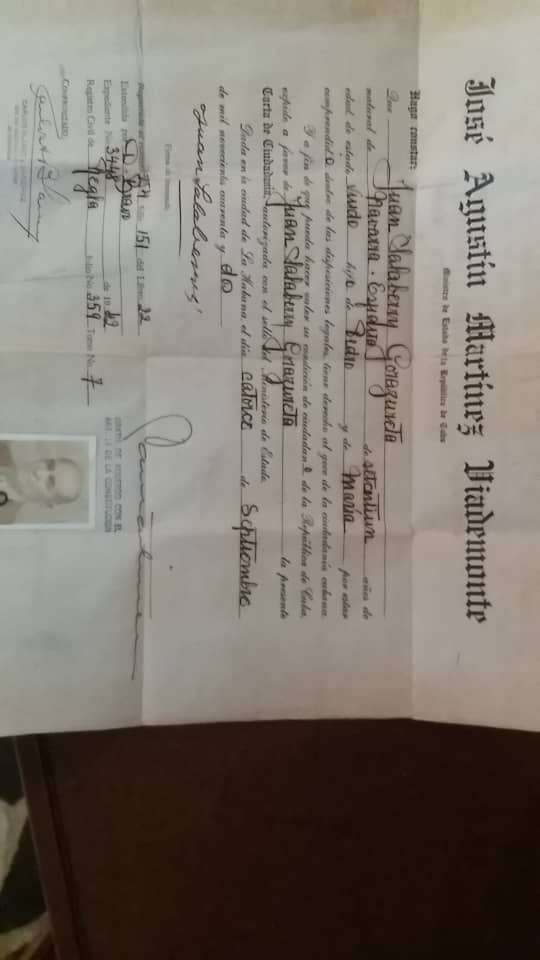 José Agustín Martínez Viademonte
Ministro de Estado de la República de Cuba
Hago constar:
Que Juan Salaberry
natural de Navarra. España de setentiun años de
edad de estado viudo hijo de Pedro y de Maria por estar
comprendido dentro de las disposiciones legales, tiene derecho al goce de la ciudadanía cubana.
Y a fin de que pueda hacer valer su condición de ciudadano de la República de Cuba,
expido a favor de Juan Salaberry la presente
Carta de Ciudadanía, autorizada con el sello del Ministerio de Estado.
Dada en la ciudad de La Habana, el día catorce de Septiembre
de mil novecientos cuarenta y do
Firma del interesado
Juan Salaberry
folio 151 del Libro 22
Extendida por
Expediente No. 3448 de 1942
Registro Civil de Regla folio No. 359 Tomo No. 7
EXENTO DE ACUERDO CON EL
DE LA CONSTITUCION
COMPROBADO